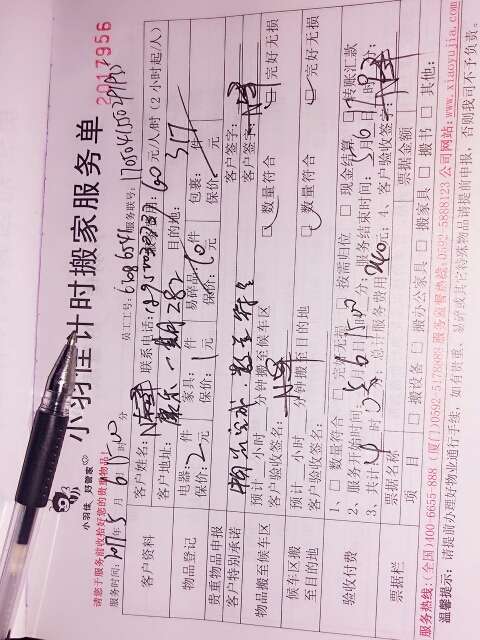 小羽佳 好管家
小羽佳计时搬家服务单
2017956
请您于服务前收拾好您的贵重物品!
员工工号:
服务联号:
服务时间: 2017年5月6日 时 分
客户资料
客户姓名:
联系电话:
60元/人/时 (2小时起/人)
客户地址:
目的地: 317
物品登记
电器: 件 家具: 件 易碎品: 件 包裹: 件
保价: 2元 保价: 1元 保价: 10元 保价: 元
贵重物品申报
客户签字:
客户特别承诺
客户签字:
物品搬至候车区
预计__小时__分钟搬至候车区
□ 数量符合 □ 完好无损
客户验收签名:
候车区搬至目的地
预计__小时__分钟搬至目的地
□ 数量符合 □ 完好无损
客户验收签名:
验收付费
1、□ 数量符合 □ 完好无损 □ 按需归位 □ 现金结算 □ 转账汇款
2、服务开始时间: 5月6日 时 分; 服务结束时间: 5月6日 时 分;
3、共计 4时 分; 总计服务费用 240元; 4、客户验收签字:
票据栏
票据名称
票据金额
项目
□ 搬设备 □ 搬办公家具 □ 搬家具 □ 搬书 □ 其他:
服务热线:(全国)400-6655-888 (厦门)0592-5178088 服务监督热线:0592-5888123 公司网站:www.xiaoyujia.com
温馨提示: 请提前办理好物业通行手续, 如有贵重、易碎或其它特殊物品请提前申报, 否则我司不予负责。